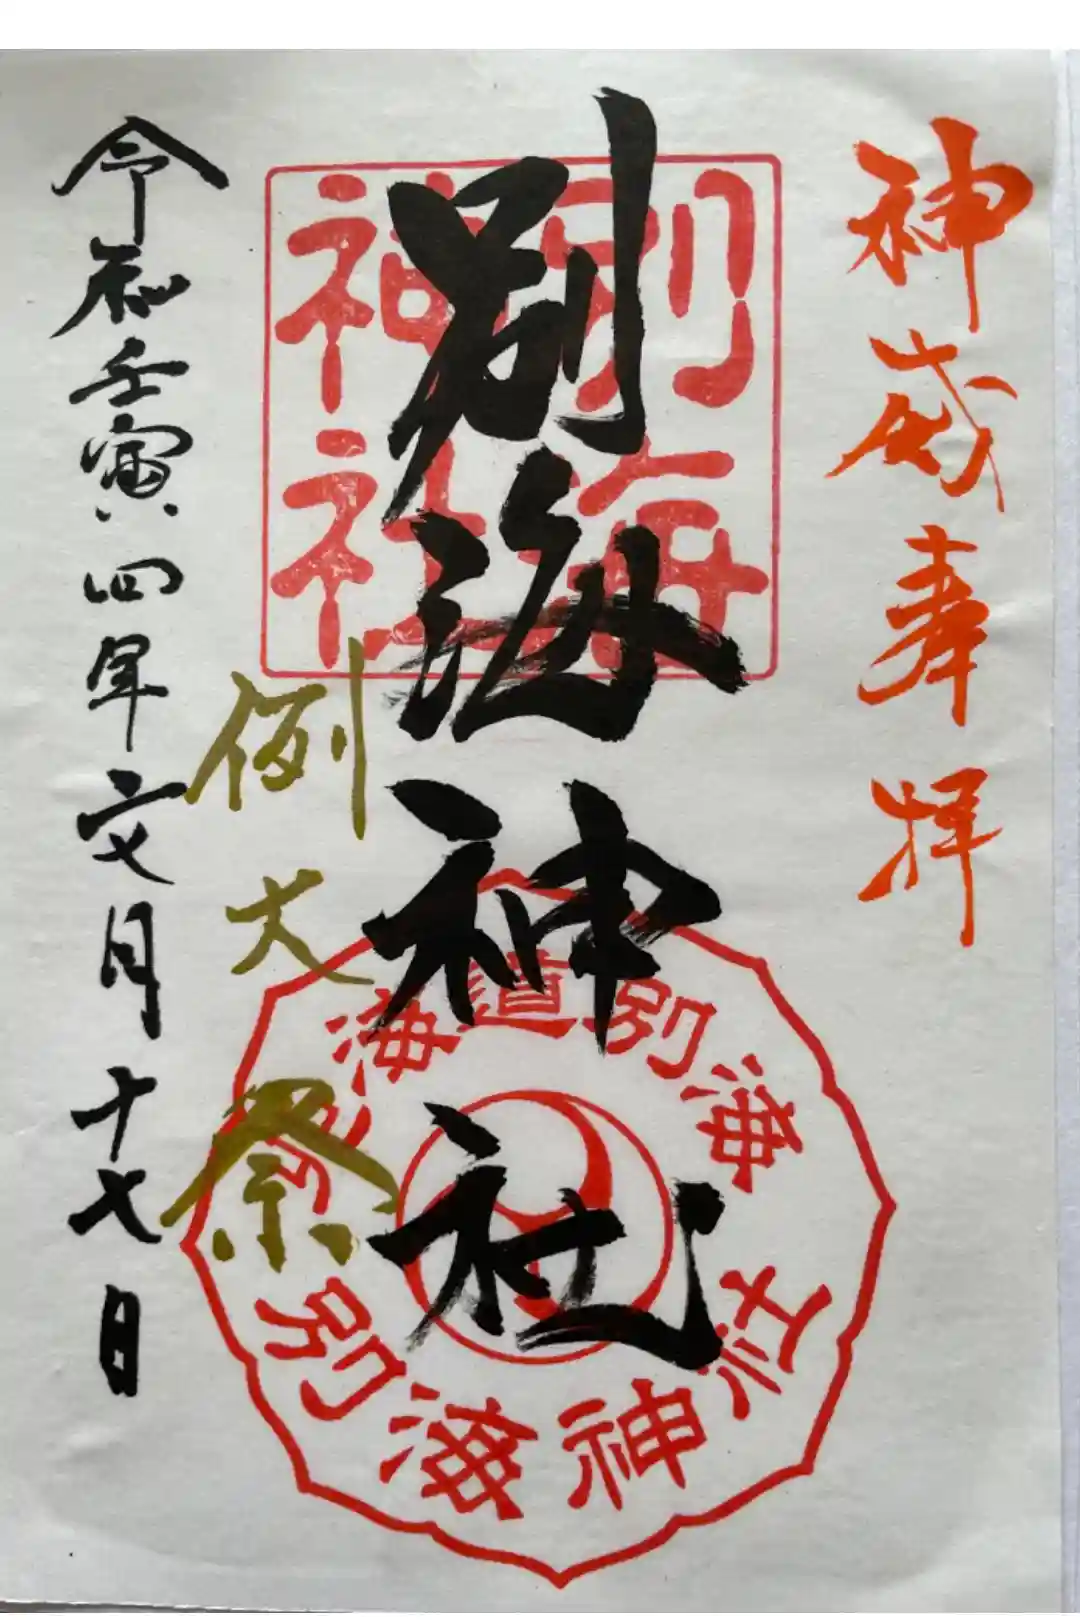 神威奉拝
別海神社
別海
神社
北海道別海
別海神社
例大祭
令和壬寅四年六月十七日